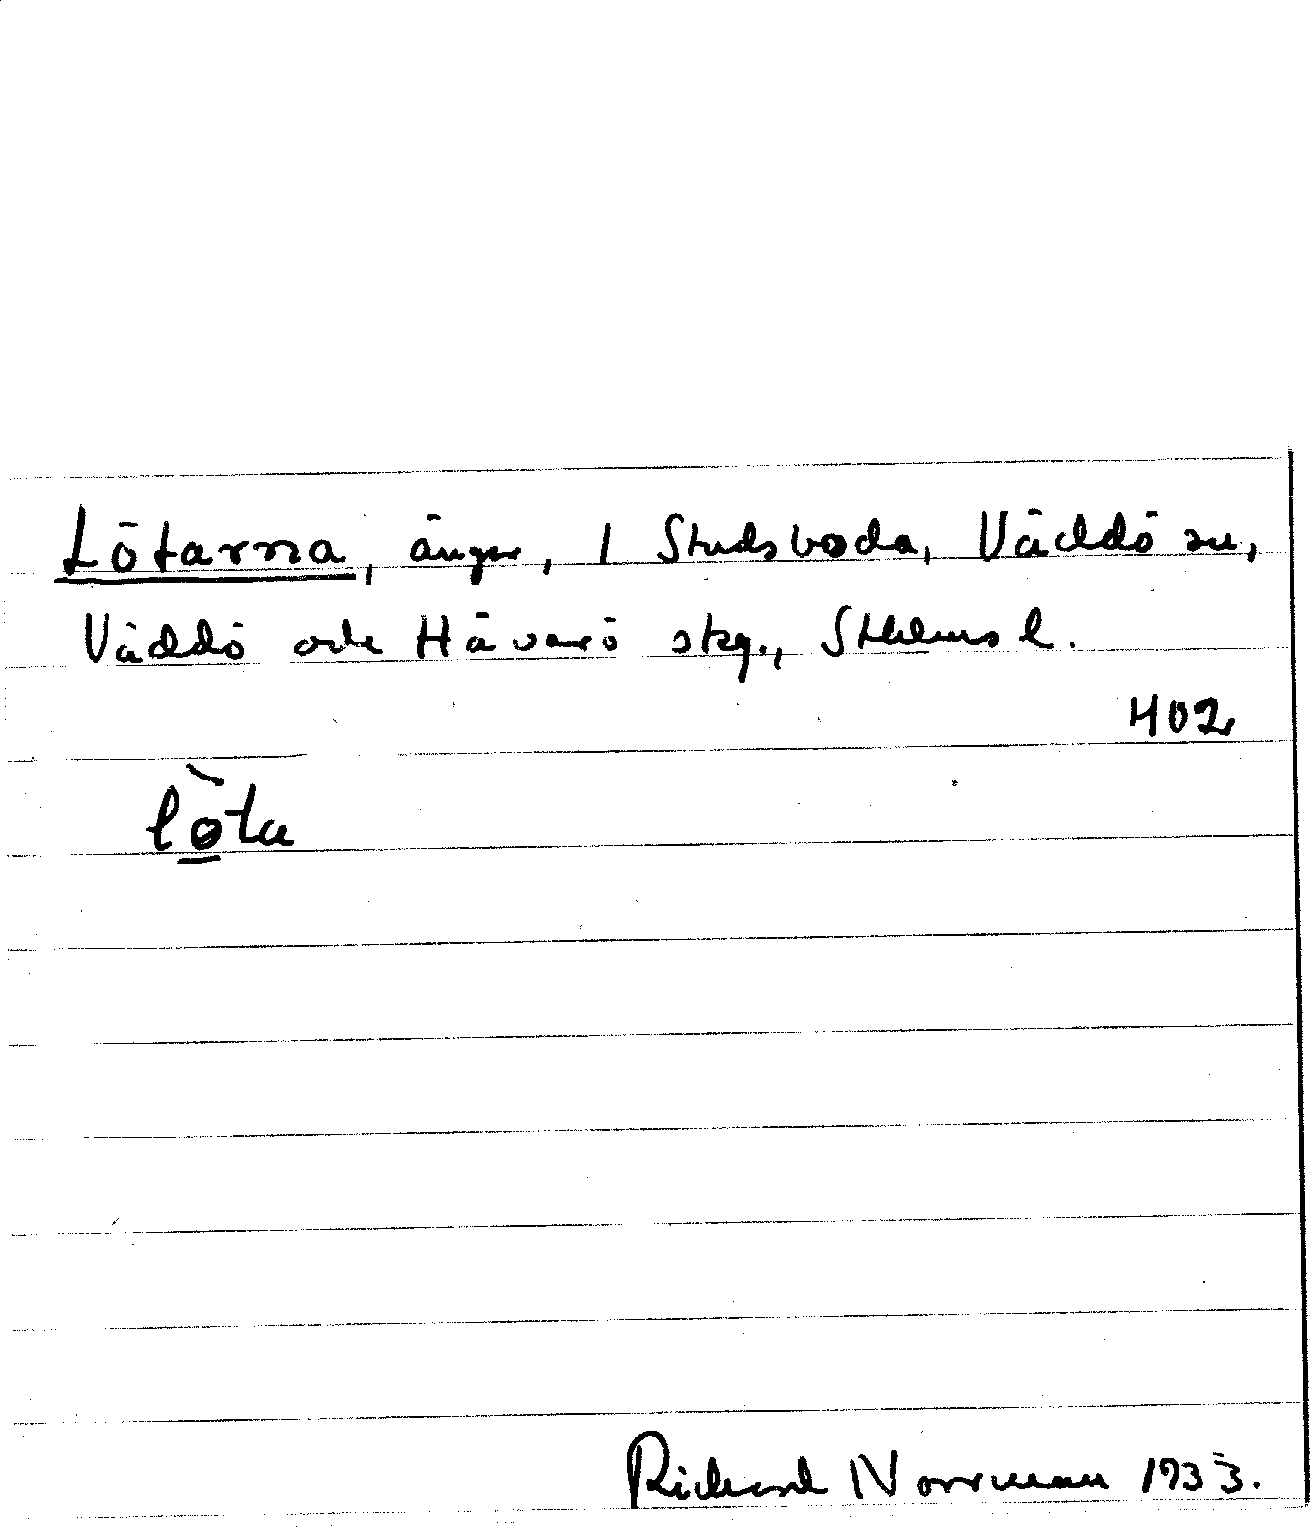 Lötarna, ängar, i Studsboda, Väddö sn,
Väddö och Häverö skg., Sthlms l.
402
lò̲ta
Richard Norrman 1933.